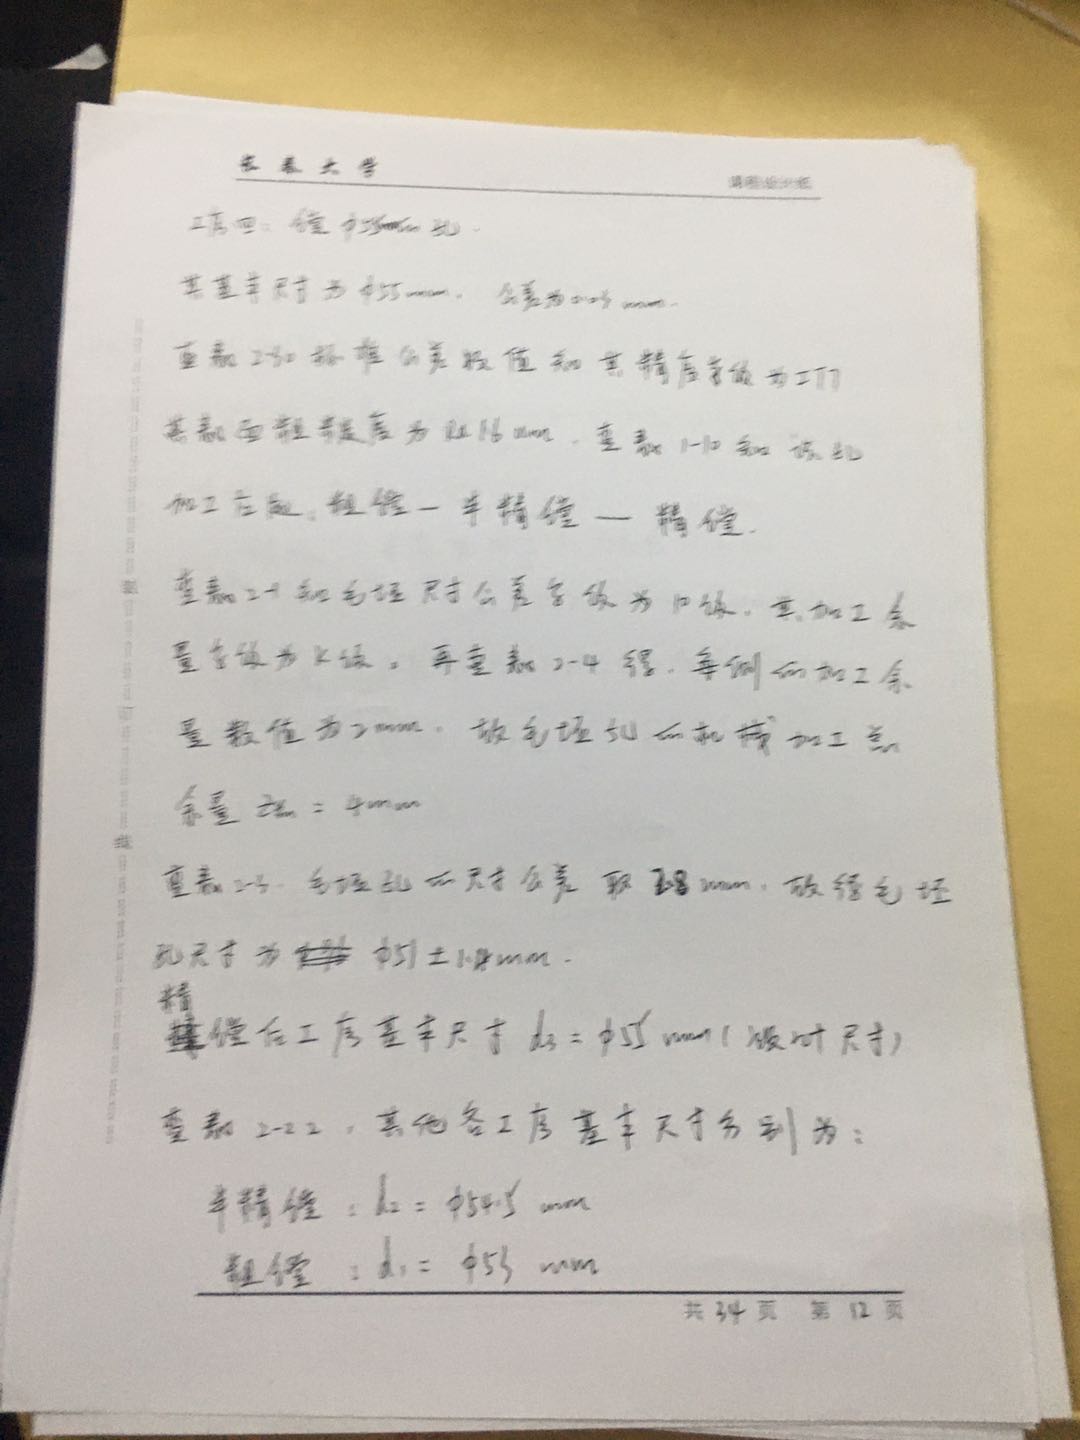 长春大学 课程设计纸
工序四：镗φ55mm孔.
其基本尺寸为φ55mm. 公差为0.03mm.
查表2-30标准公差数值知其精度等级为IT7
其表面粗糙度为Ra1.6um. 查表1-10知该孔
加工方敀：粗镗—半精镗—精镗.
查表2-1知毛坯尺寸公差等级为10级. 其加工余
量等级为K级. 再查表2-4得. 每侧的加工余
量数值为2mm. 故毛坯孔的机械加工总
余量 = 4mm
查表2-3. 毛坯孔的尺寸公差取2.8mm. 故得毛坯
孔尺寸为 φ51±1.4mm.
精镗后工序基本尺寸d3=φ55mm(设计尺寸)
查表2-22，其他各工序基本尺寸分别为：
半精镗：d2=φ54.5mm
粗镗：d1=φ53mm
共34页 第12页